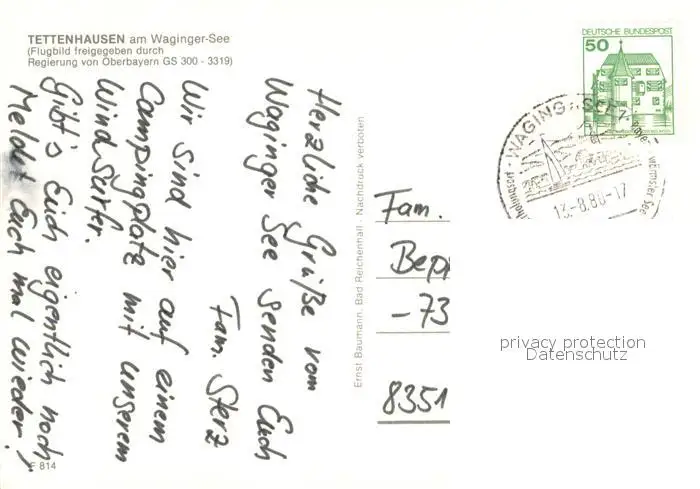 TETTENHAUSEN am Waginger-See
(Flugbild freigegeben durch
Regierung von Oberbayern GS 300 - 3319)
Herzliche Grüße vom
Waginger See senden Euch
Fam. Sterz
Wir sind hier auf einem
Campingplatz mit unserem
Windsurfr.
Gibt's Euch eigentlich noch
Meldet Euch mal wieder!
F 814
Ernst Baumann, Bad Reichenhall - Nachdruck verboten
DEUTSCHE BUNDESPOST
50
WAGING
13.-8.80-17
wärmster See
Fam.
Bepp
-73
8351
privacy protection
Datenschutz